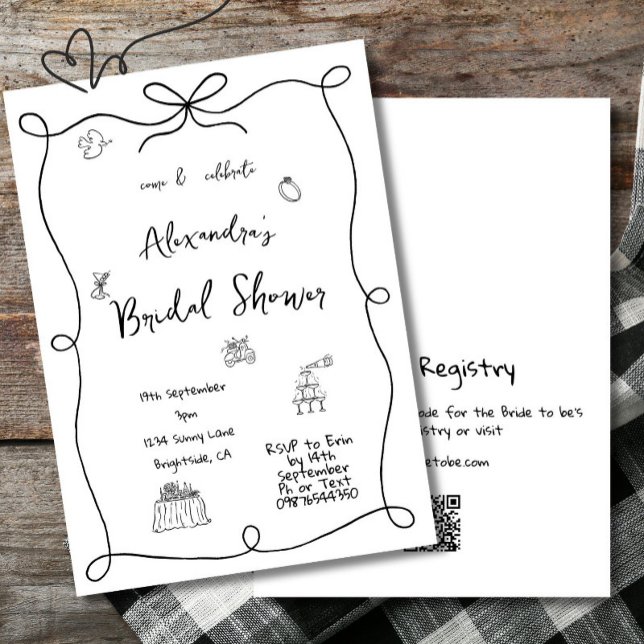 come & celebrate
Alexandra's
Bridal Shower
19th September
3pm
1234 Sunny Lane
Brightside, CA
RSVP to Erin
by 14th
September
Ph or Text
09876544350
Registry
for the Bride to be's
or visit